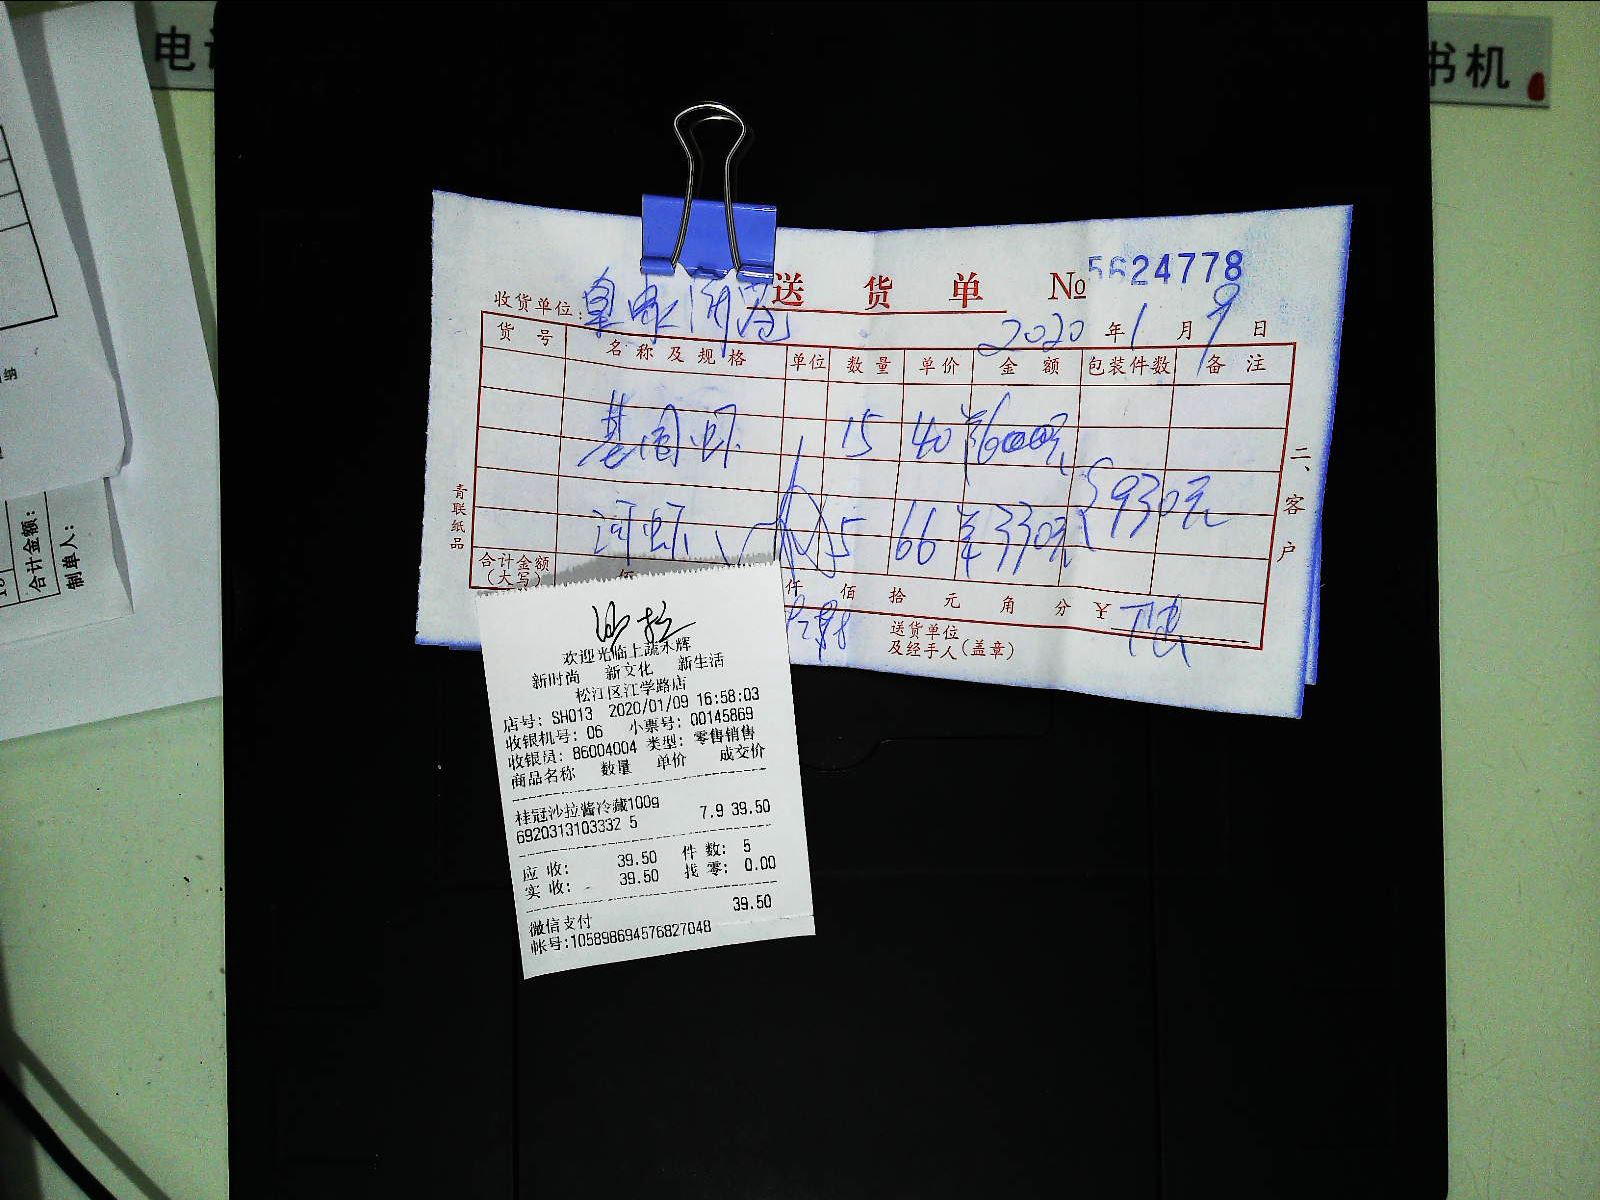 电
书机
合计金额:
制单人:
送货单 № 5624778
收货单位:
2020年1月9日
货号 名称及规格 单位 数量 单价 金额 包装件数 备注
基围虾 15 40 ¥600元
930元
河虾 5 66 ¥330元
合计金额
(大写)
仟 佰 拾 元 角 分 ¥
送货单位
及经手人(盖章)
青联纸品
二、客户
沙拉
欢迎光临上蔬永辉
新时尚 新文化 新生活
松江区江学路店
店号: SH013 2020/01/09 16:58:03
收银机号: 06 小票号: 00145869
收银员: 86004004 类型: 零售销售
商品名称 数量 单价 成交价
桂冠沙拉酱冷藏100g
6920313103332 5 7.9 39.50
应 收: 39.50 件 数: 5
实 收: 39.50 找 零: 0.00
微信支付 39.50
帐号:105898694576827048